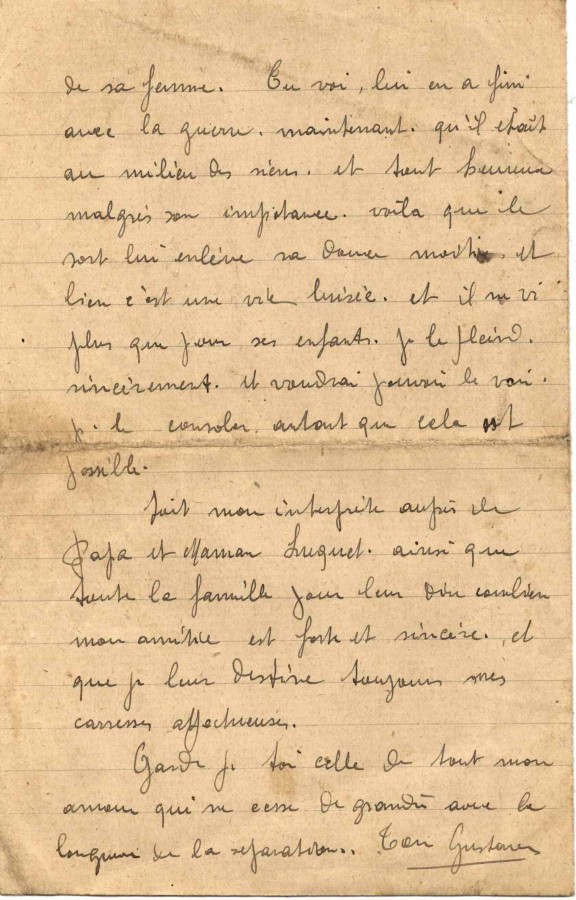 de sa femme. Tu voi, lui en a fini
avec la guerre. maintenant. qu'il etait
au milieu des siens. et tout heureux
malgrés son impotance. voila que le
sort lui enlève sa douce moitié. et
bien c'est une vie brisée. et il ne vi
plus que pour ses enfants. je le pleind.
sincérement. et voudrai pouvoir le voir.
p. le consoler. autant que cela est
possible.
Soit mon interprète auprès de
Papa et Maman Luquet. ainsi que
toute la famille pour leur dire combien
mon amitiée est forte et sincère. et
que je leur destine toujours mes
carresses affectueuses.
Garde p. toi celle de tout mon
amour qui ne cesse de grandir avec la
longueur de la séparation.. Ton Gustave